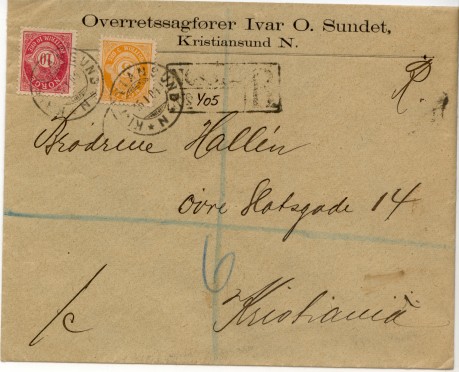 Overretssagfører Ivar O. Sundet,
Kristiansund N.
NORGE 10
405
R.
Brödrene Hallén
Övre Slotsgade 14
6
Kristiania
/c